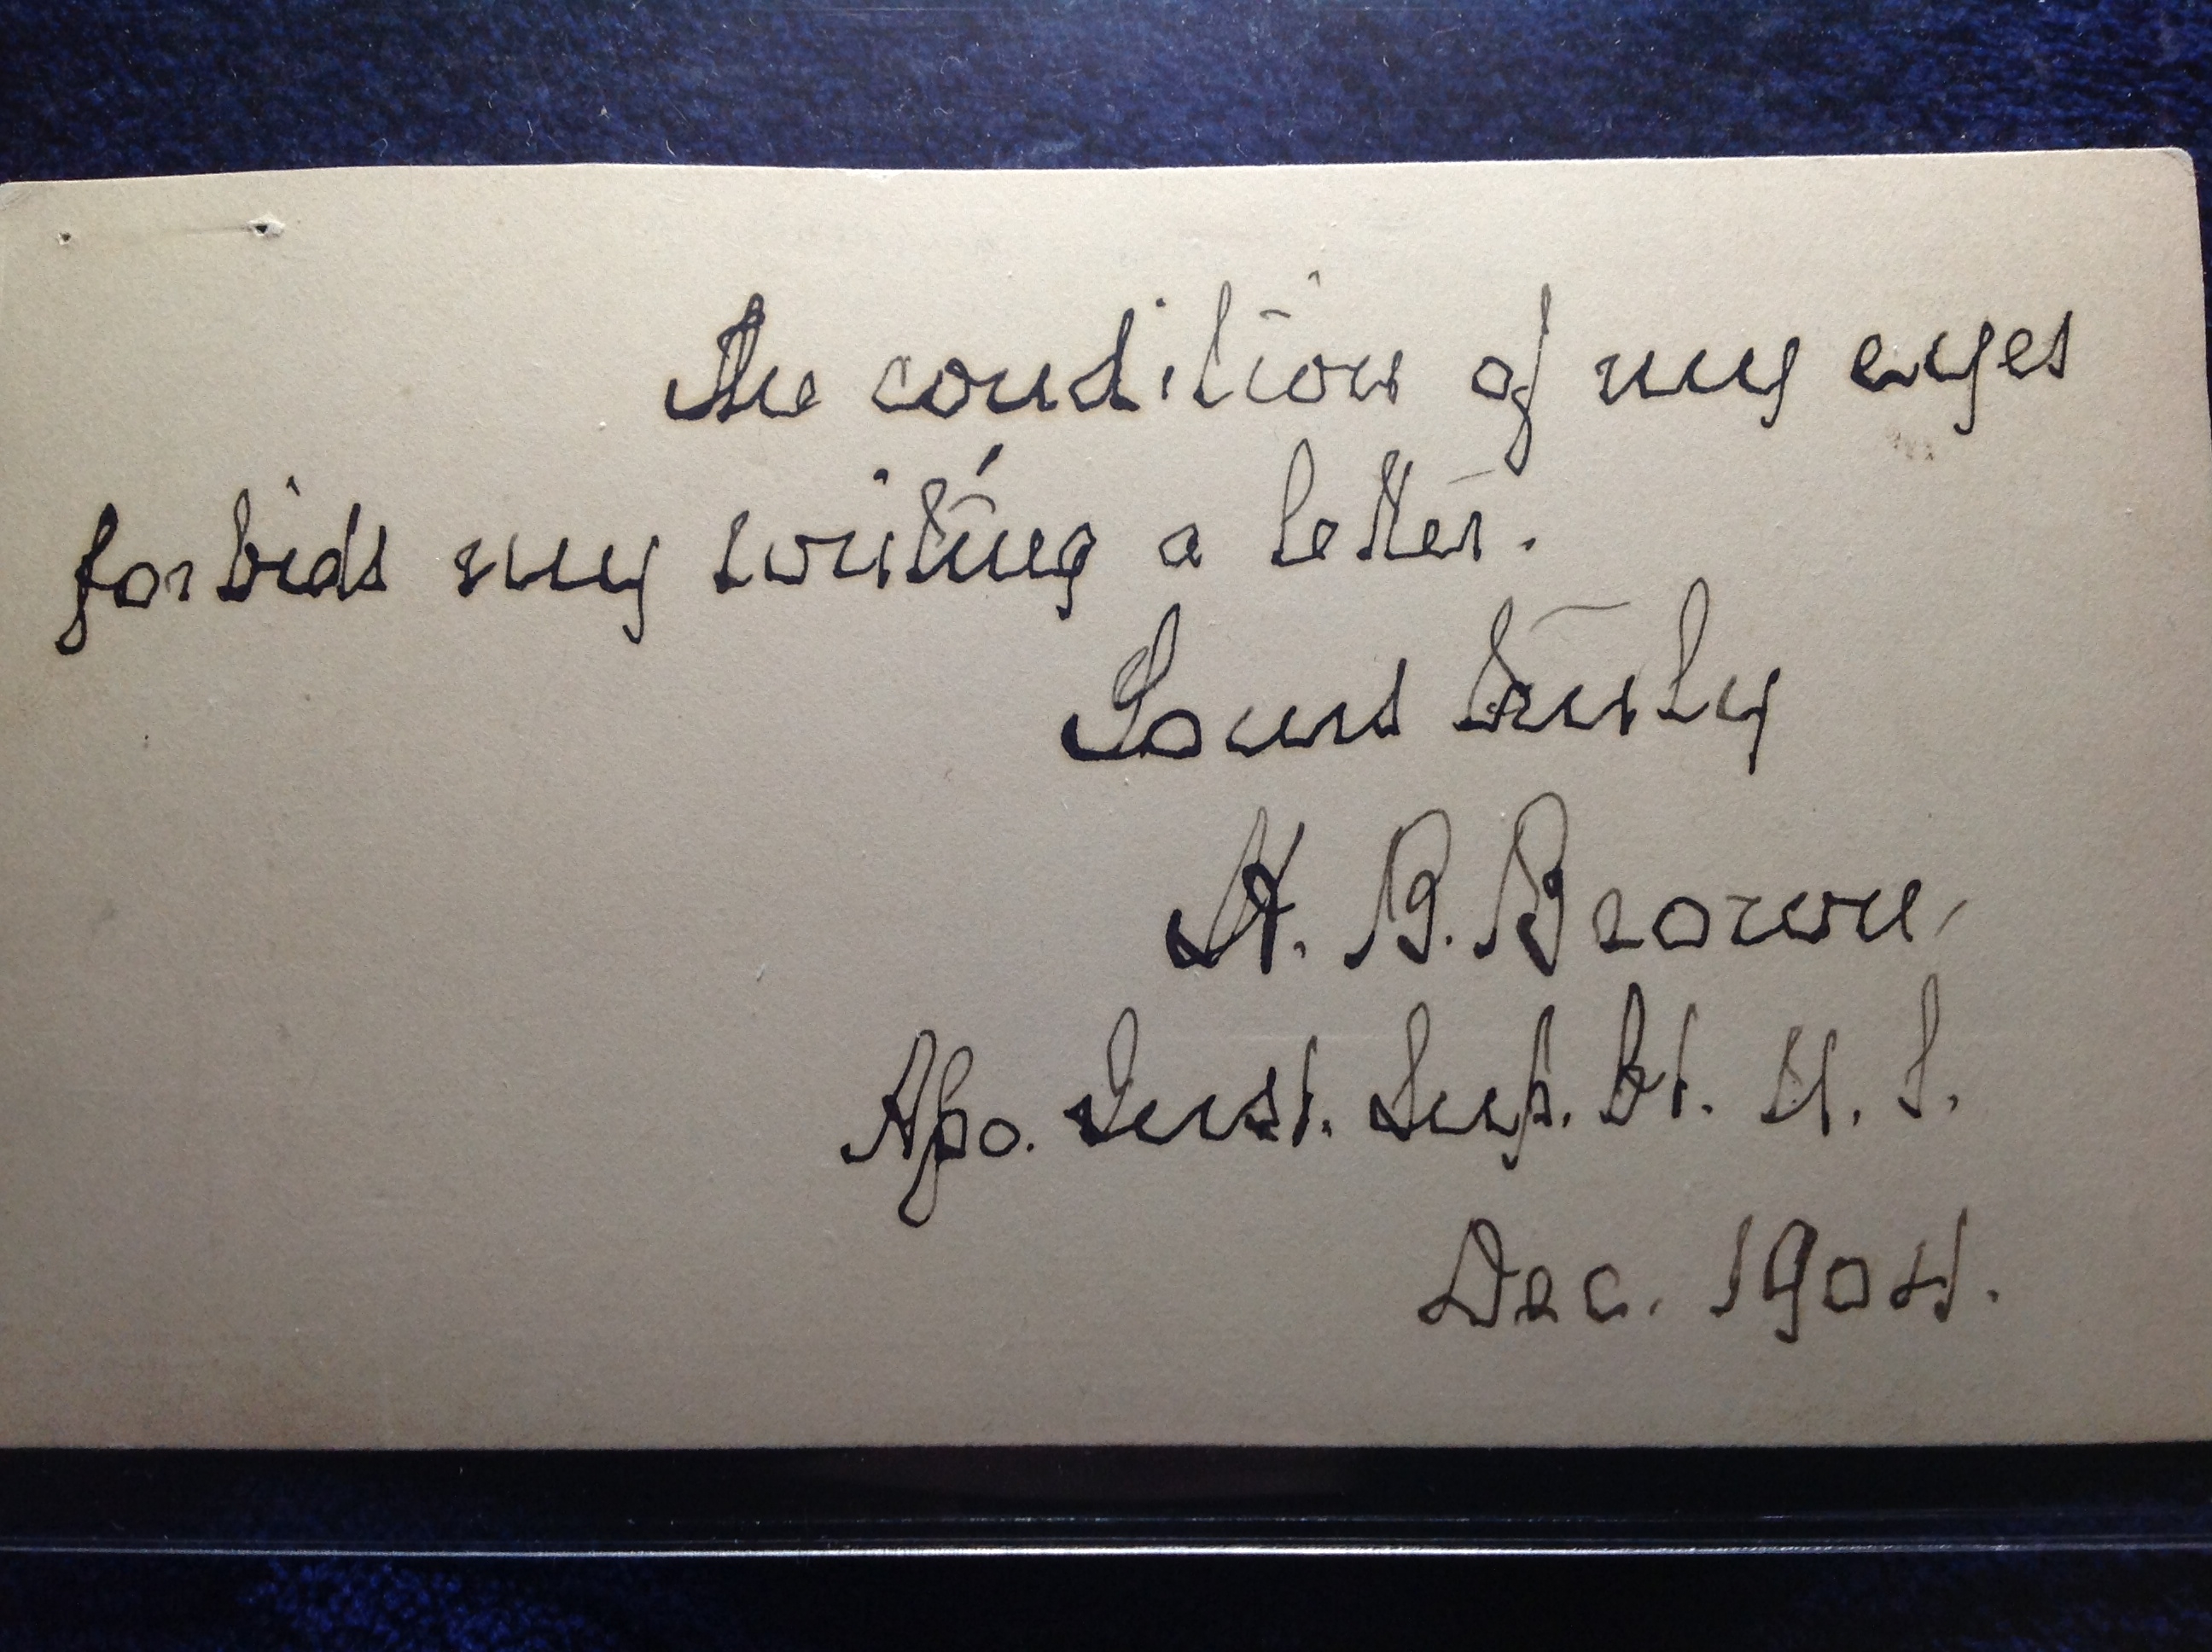 The condition of my eyes
forbids my writing a letter.
Yours truly
H. B. Brown,
Aso. Just. Sup. Ct. U. S.
Dec. 1904.